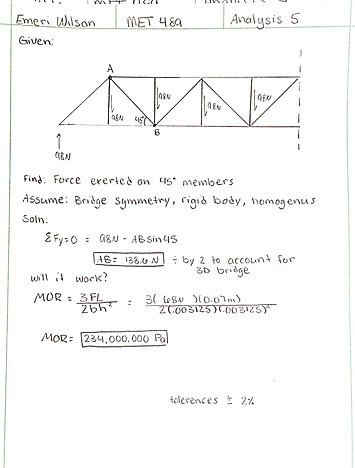 Emeri Wilson MET 489 Analysis 5
Given:
A
98N
45°
B
98N
98N
98N
98N
Find: Force exerted on 45° members
Assume: Bridge symmetry, rigid body, homogenus
Soln:
ΣFy=0 = 98N - ABsin45
AB= 138.6 N ÷ by 2 to account for
3D bridge
will it work?
MOR = 3FL / 2bh² = 3(68N)(0.07m) / 2(.003125)(.003125)²
MOR= 234,000,000 Pa
tolerences ± 2%